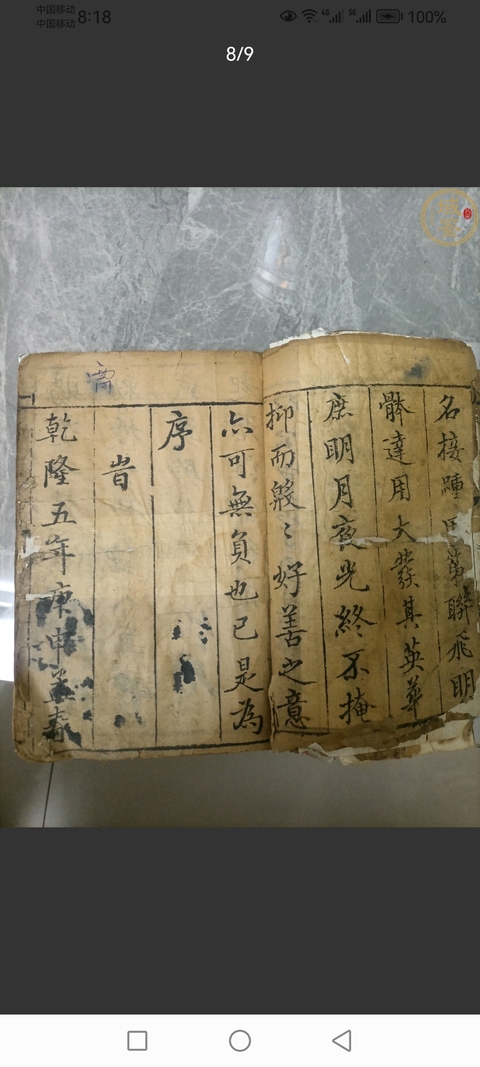 中国移动
中国移动
8:18
4G
5G
100%
8/9
名接踵甲第聯飛明
骵達用大發其英華
庶明月夜光終不掩
抑而殷〻好善之意
亦可無負也已是為
序
旹
乾隆五年庚申孟春